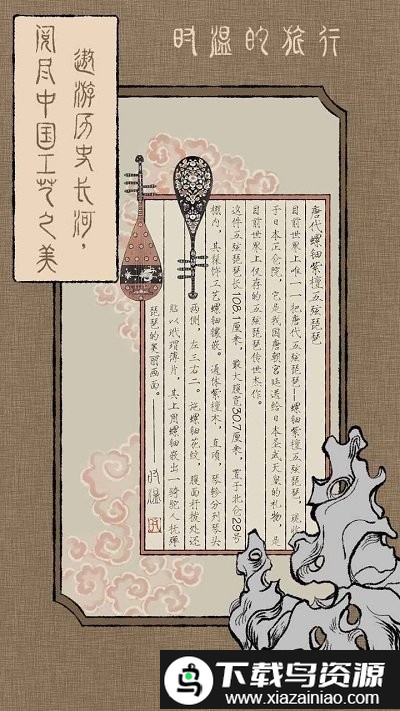 时温的旅行
遨游历史长河，
阅尽中国工艺之美
唐代螺钿紫檀五弦琵琶
目前世界上唯一一把唐代五弦琵琶—螺钿紫檀五弦琵琶，现
于日本正仓院，它是我国唐朝宫廷送给日本圣武天皇的礼物，是
目前世界上仅存的五弦琵琶传世杰作。
这件五弦琵琶长108.1厘米，最大腹宽30.7厘米，置于北仓29号
棚内，其装饰工艺螺钿镶嵌。通体紫檀木，直项，琴轸分列琴头
两侧，左三右二。施螺钿花纹，腹面杆拨处还
贴以玳瑁薄片，其上用螺钿嵌出一骑驼人抚弹
琵琶的美丽画面。
——时温
下载鸟资源
www.xiazainiao.com